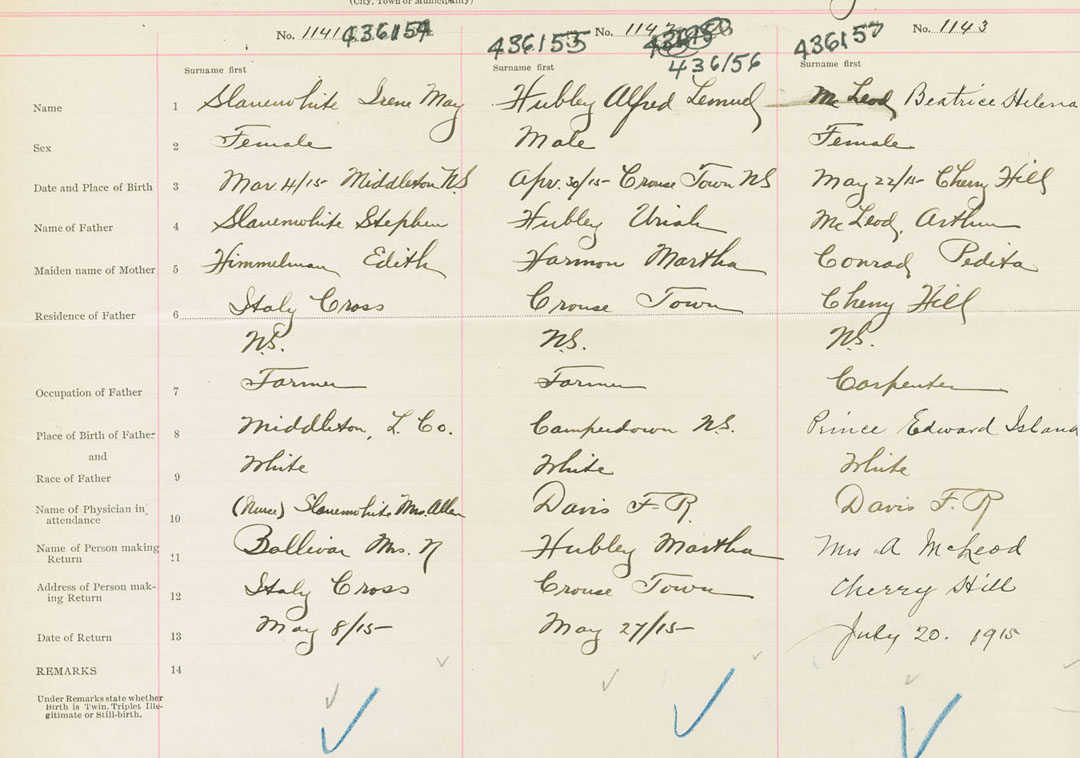 (City, Town or Municipality)
No. 1141 436154 No. 1142 No. 1143
436155 436156 436157
Surname first Surname first Surname first
Name 1 Slauenwhite Irene May Hubley Alfred Lemuel McLeod Beatrice Helena
Sex 2 Female Male Female
Date and Place of Birth 3 Mar. 4/15- Middleton N.S Apr. 30/15- Crouse Town NS May 22/15- Cherry Hill
Name of Father 4 Slauenwhite Stephen Hubley Uriah McLeod, Arthur
Maiden name of Mother 5 Himmelman Edith Harmon Martha Conrad Pedita
Residence of Father 6 Italy Cross Crouse Town Cherry Hill
N.S. N.S. N.S.
Occupation of Father 7 Farmer Farmer Carpenter
Place of Birth of Father 8 Middleton, L. Co. Camperdown N.S. Prince Edward Island
and
Race of Father 9 White White White
Name of Physician in attendance 10 (Nurse) Slauenwhite Mrs. Allan Davis F. R. Davis F. R
Name of Person making Return 11 Bollivar Mrs. N Hubley Martha Mrs A McLeod
Address of Person making Return 12 Italy Cross Crouse Town Cherry Hill
Date of Return 13 May 8/15- May 27/15- July 20. 1915
REMARKS 14
Under Remarks state whether
Birth is Twin, Triplet Ille-
gitimate or Still-birth.